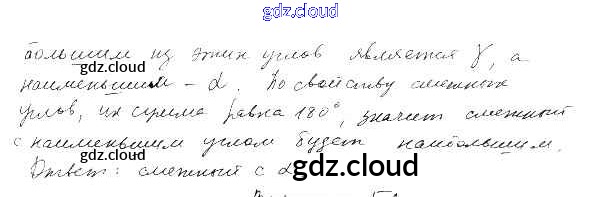 gdz.cloud
большим из этих углов является γ, а
gdz.cloud
наименьшим – α. По свойству смежных
углов, их сумма равна 180°, значит смежный
с наименьшим углом будет наибольшим.
gdz.cloud
Ответ: смежный с α
gdz.cloud